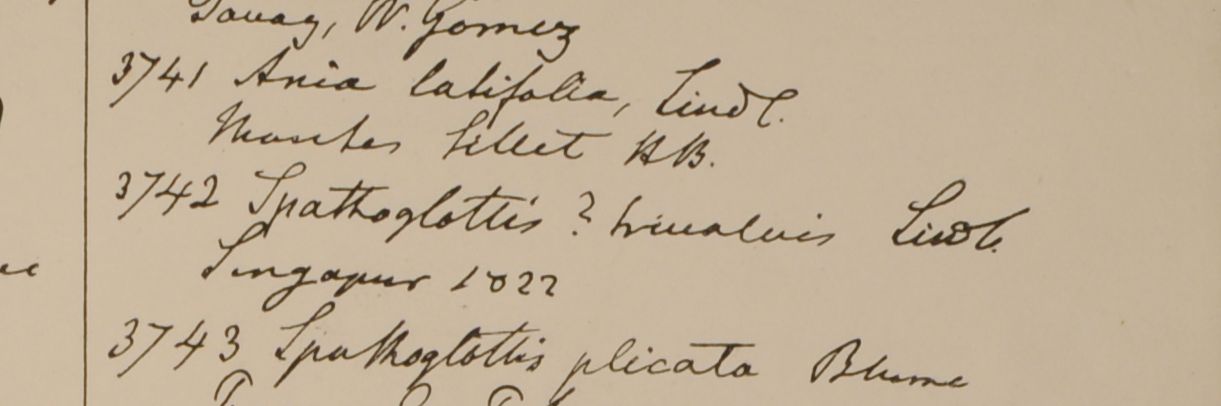 Tavay, W. Gomez
3741 Ania latifolia, Lindl.
Montes Sillet HB.
3742 Spathoglottis ? trivalvis Lindl.
Singapur 1822
3743 Spathoglottis plicata Blume